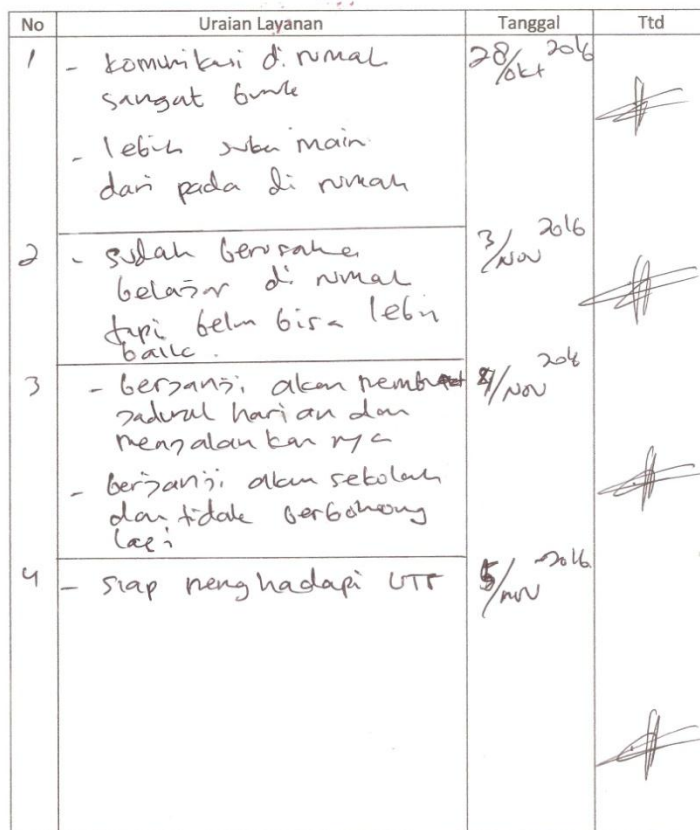 No Uraian Layanan Tanggal Ttd
1 - komunikasi di rumah 28/okt 2016
sangat buruk
- lebih suka main
dari pada di rumah
2 - sudah berusaha 3/Nov 2016
belajar di rumah
tapi belum bisa lebih
baik.
3 - berjanji akan membuat /Nov
jadwal harian dan
menjalankannya
- berjanji akan sekolah
dan tidak berbohong
lagi
4 - siap menghadapi /nov 2016